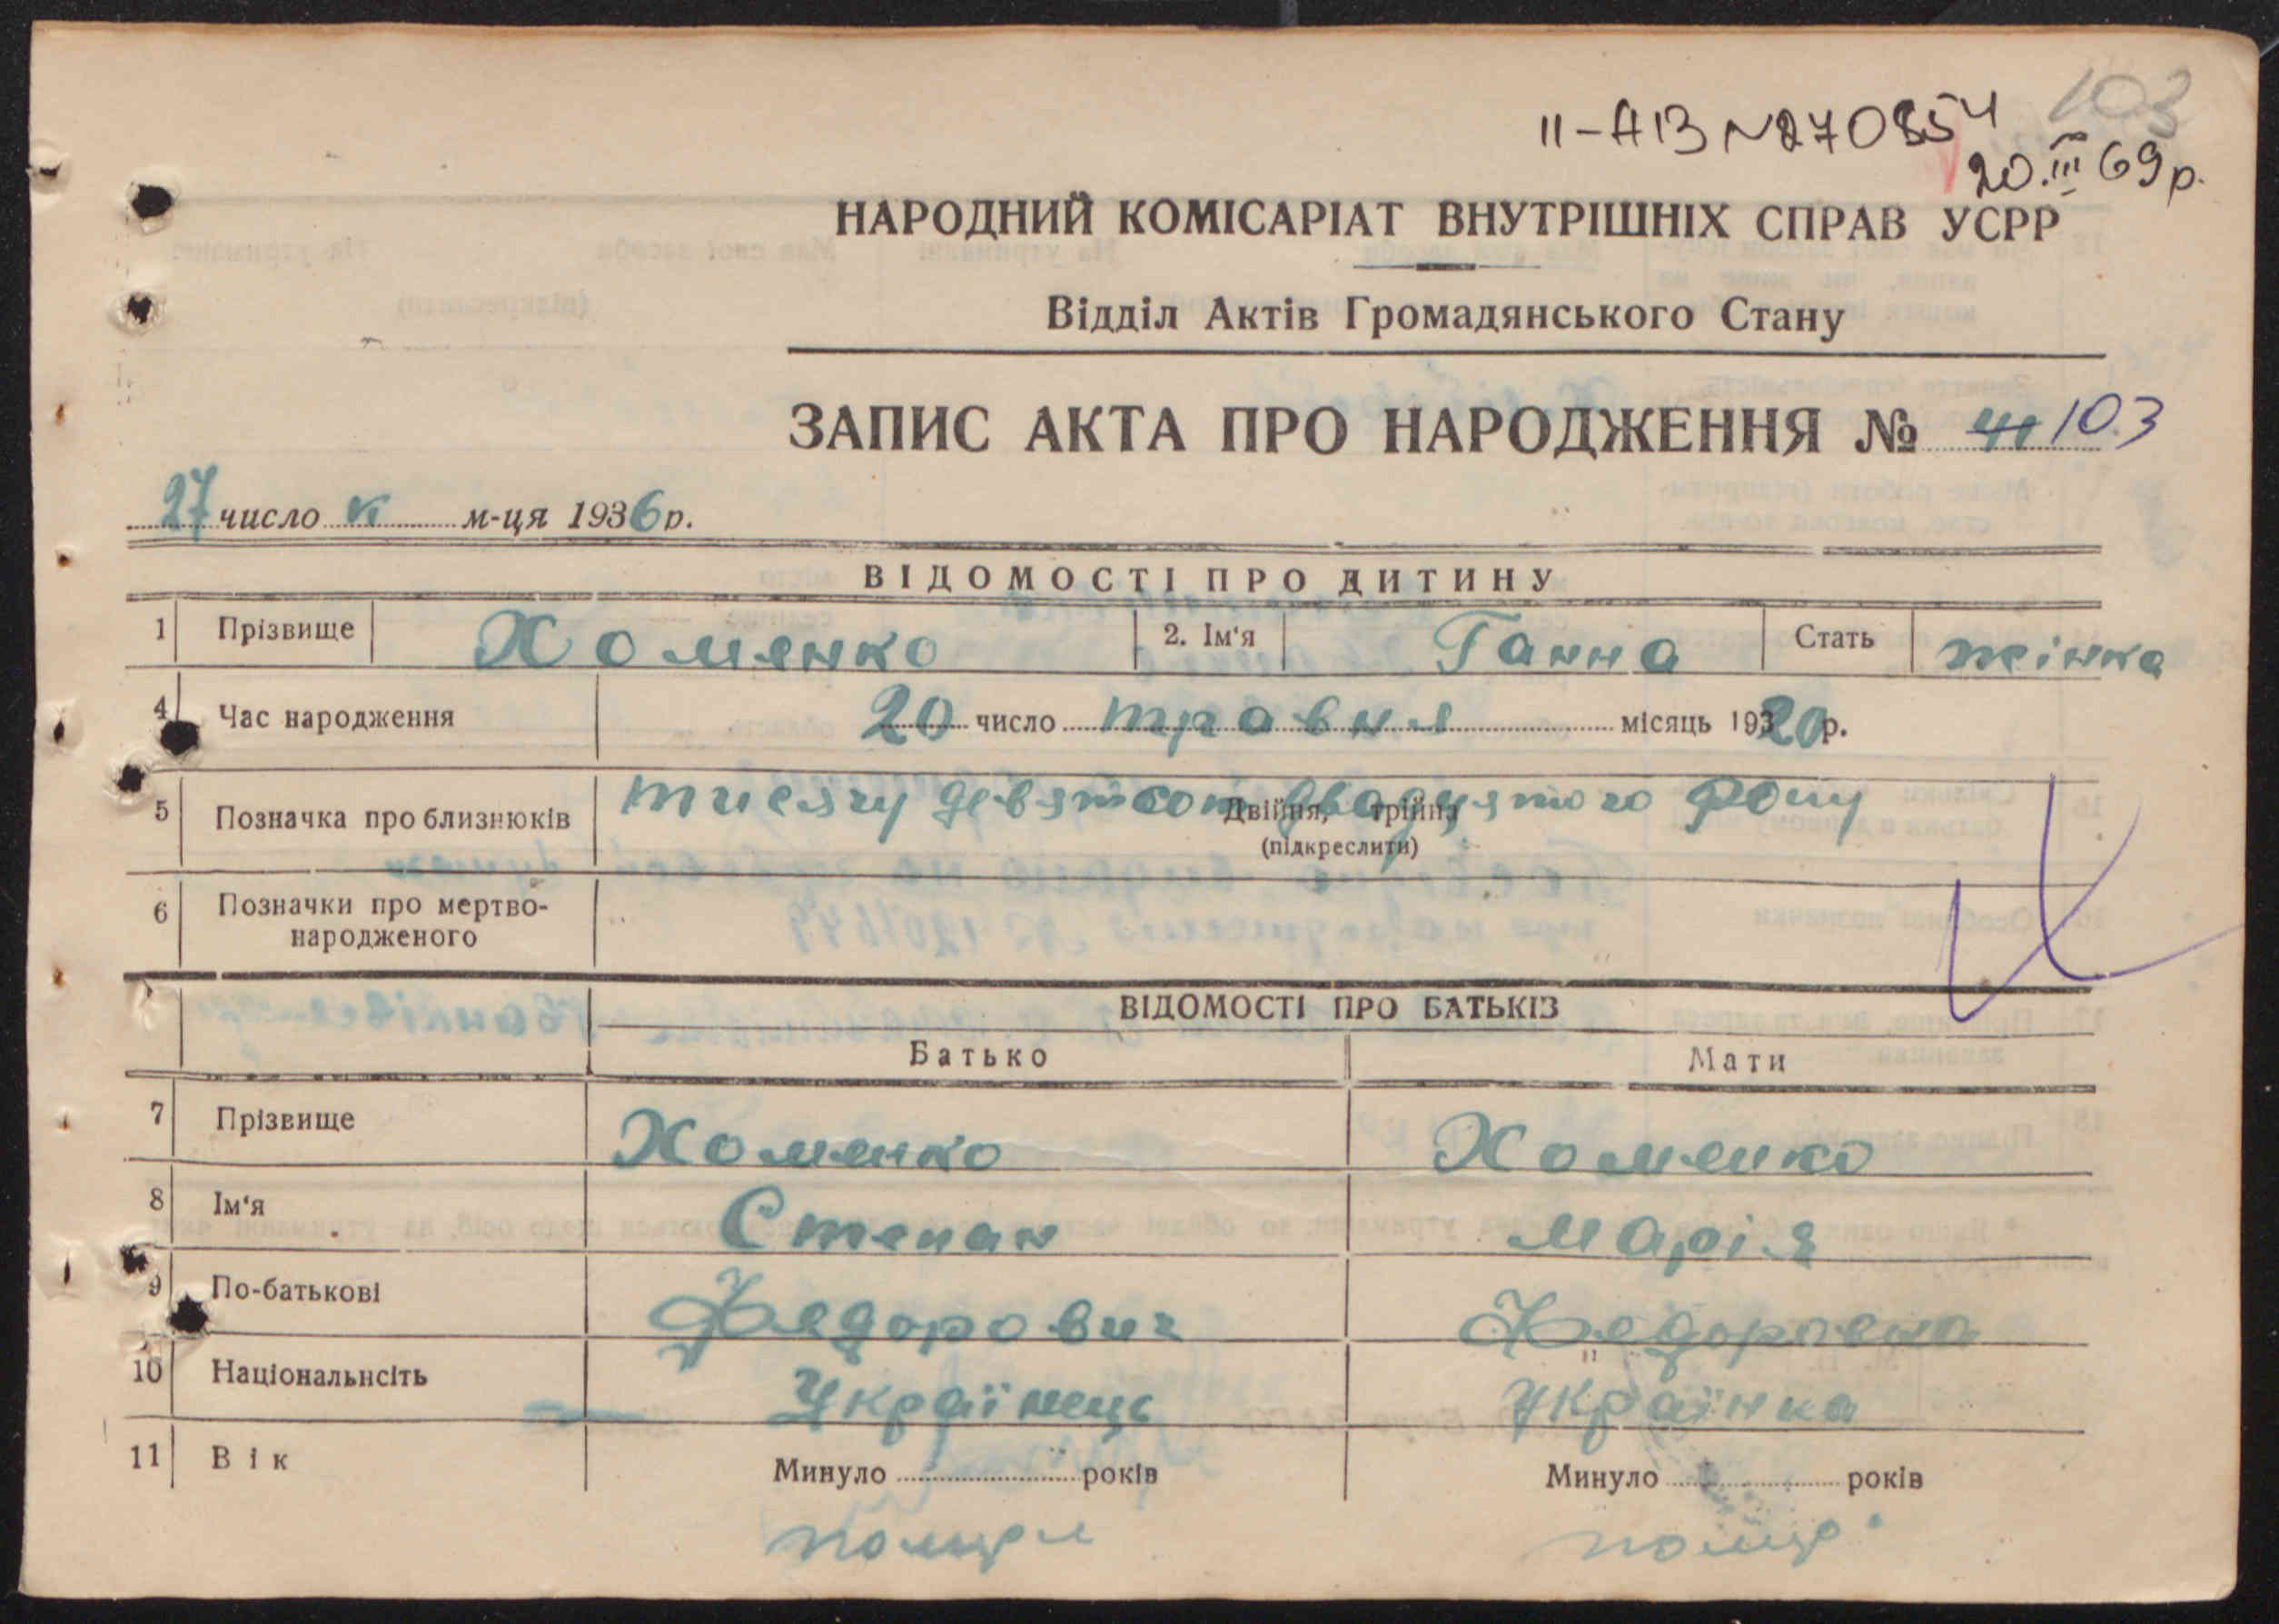 103
II-АВ №270854
20.III 69р.
НАРОДНИЙ КОМІСАРІАТ ВНУТРІШНІХ СПРАВ УСРР
Відділ Актів Громадянського Стану
ЗАПИС АКТА ПРО НАРОДЖЕННЯ № 41 103
27 число VI м-ця 1936 р.
ВІДОМОСТІ ПРО ДИТИНУ
1 Прізвище Хоменко 2. Ім'я Ганна Стать жінка
4 Час народження 20 число травня місяць 19320р.
тисячу девятсот двадцятого року
5 Позначка про близнюків Двійня, трійня
(підкреслити)
6 Позначки про мертво-
народженого
ВІДОМОСТІ ПРО БАТЬКІВ
Батько Мати
7 Прізвище Хоменко Хоменко
8 Ім'я Степан Марія
9 По-батькові Федорович Федоровна
10 Національнсіть Українець Українка
11 Вік Минуло років Минуло років